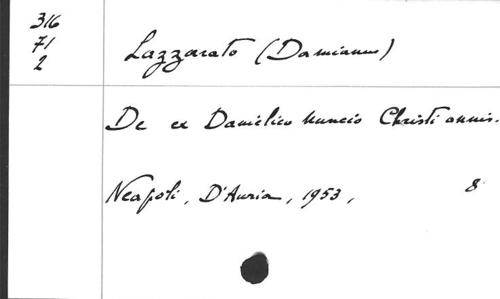 316
71
2
Lazzarato (Damianus)
De ex Danielico nuncio Christi annis.
Neapoli, D'Auria, 1953, 8